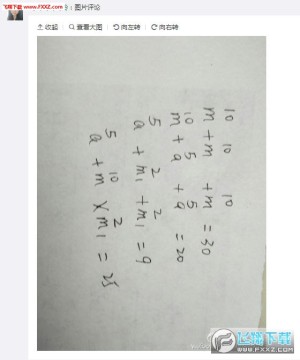 飞翔下载 www.FXXZ.com
：图片评论
收起 查看大图 向左转 向右转
10 10 10
m + m + m = 30
10 5 5
m + a + a = 20
5 2 2
a + m₁ + m₁ = 9
5 10 2
a + m × m₁ = 25
飞翔下载